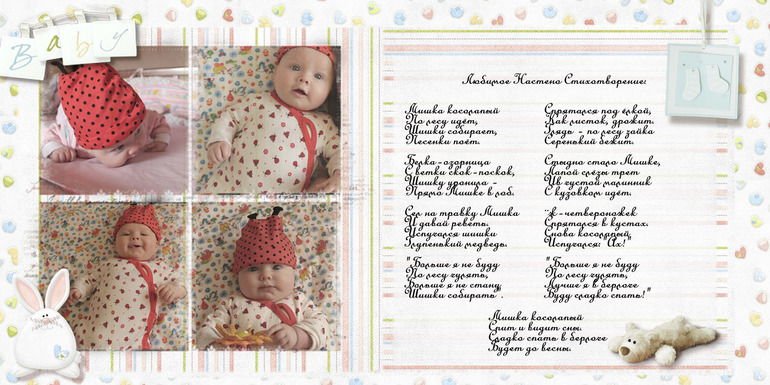 Baby
Любимое Настено Стихотворение:
Мишка косолапый
По лесу идёт,
Шишки собирает,
Песенки поёт.
Белка-озорница
С ветки скок-поскок,
Шишку уронила -
Прямо Мишке в лоб.
Сел на травку Мишка
И давай реветь.
Испугался шишки
Глупенький медведь.
"Больше я не буду
По лесу гулять,
Больше я не стану
Шишки собирать".
Спрятался под ёлкой,
Как листок, дрожит.
Глядь - по лесу зайка
Серенький бежит.
Стыдно стало Мишке,
Лапой слёзы трет
И в густой малинник
С кузовком идёт.
Ёж-четвероножек
Спрятался в кустах.
Снова косолапый
Испугался: "Их!"
"Больше я не буду
По лесу гулять,
Лучше я в берлоге
Буду сладко спать!"
Мишка косолапый
Спит и видит сны.
Сладко спать в берлоге
Будет до весны.